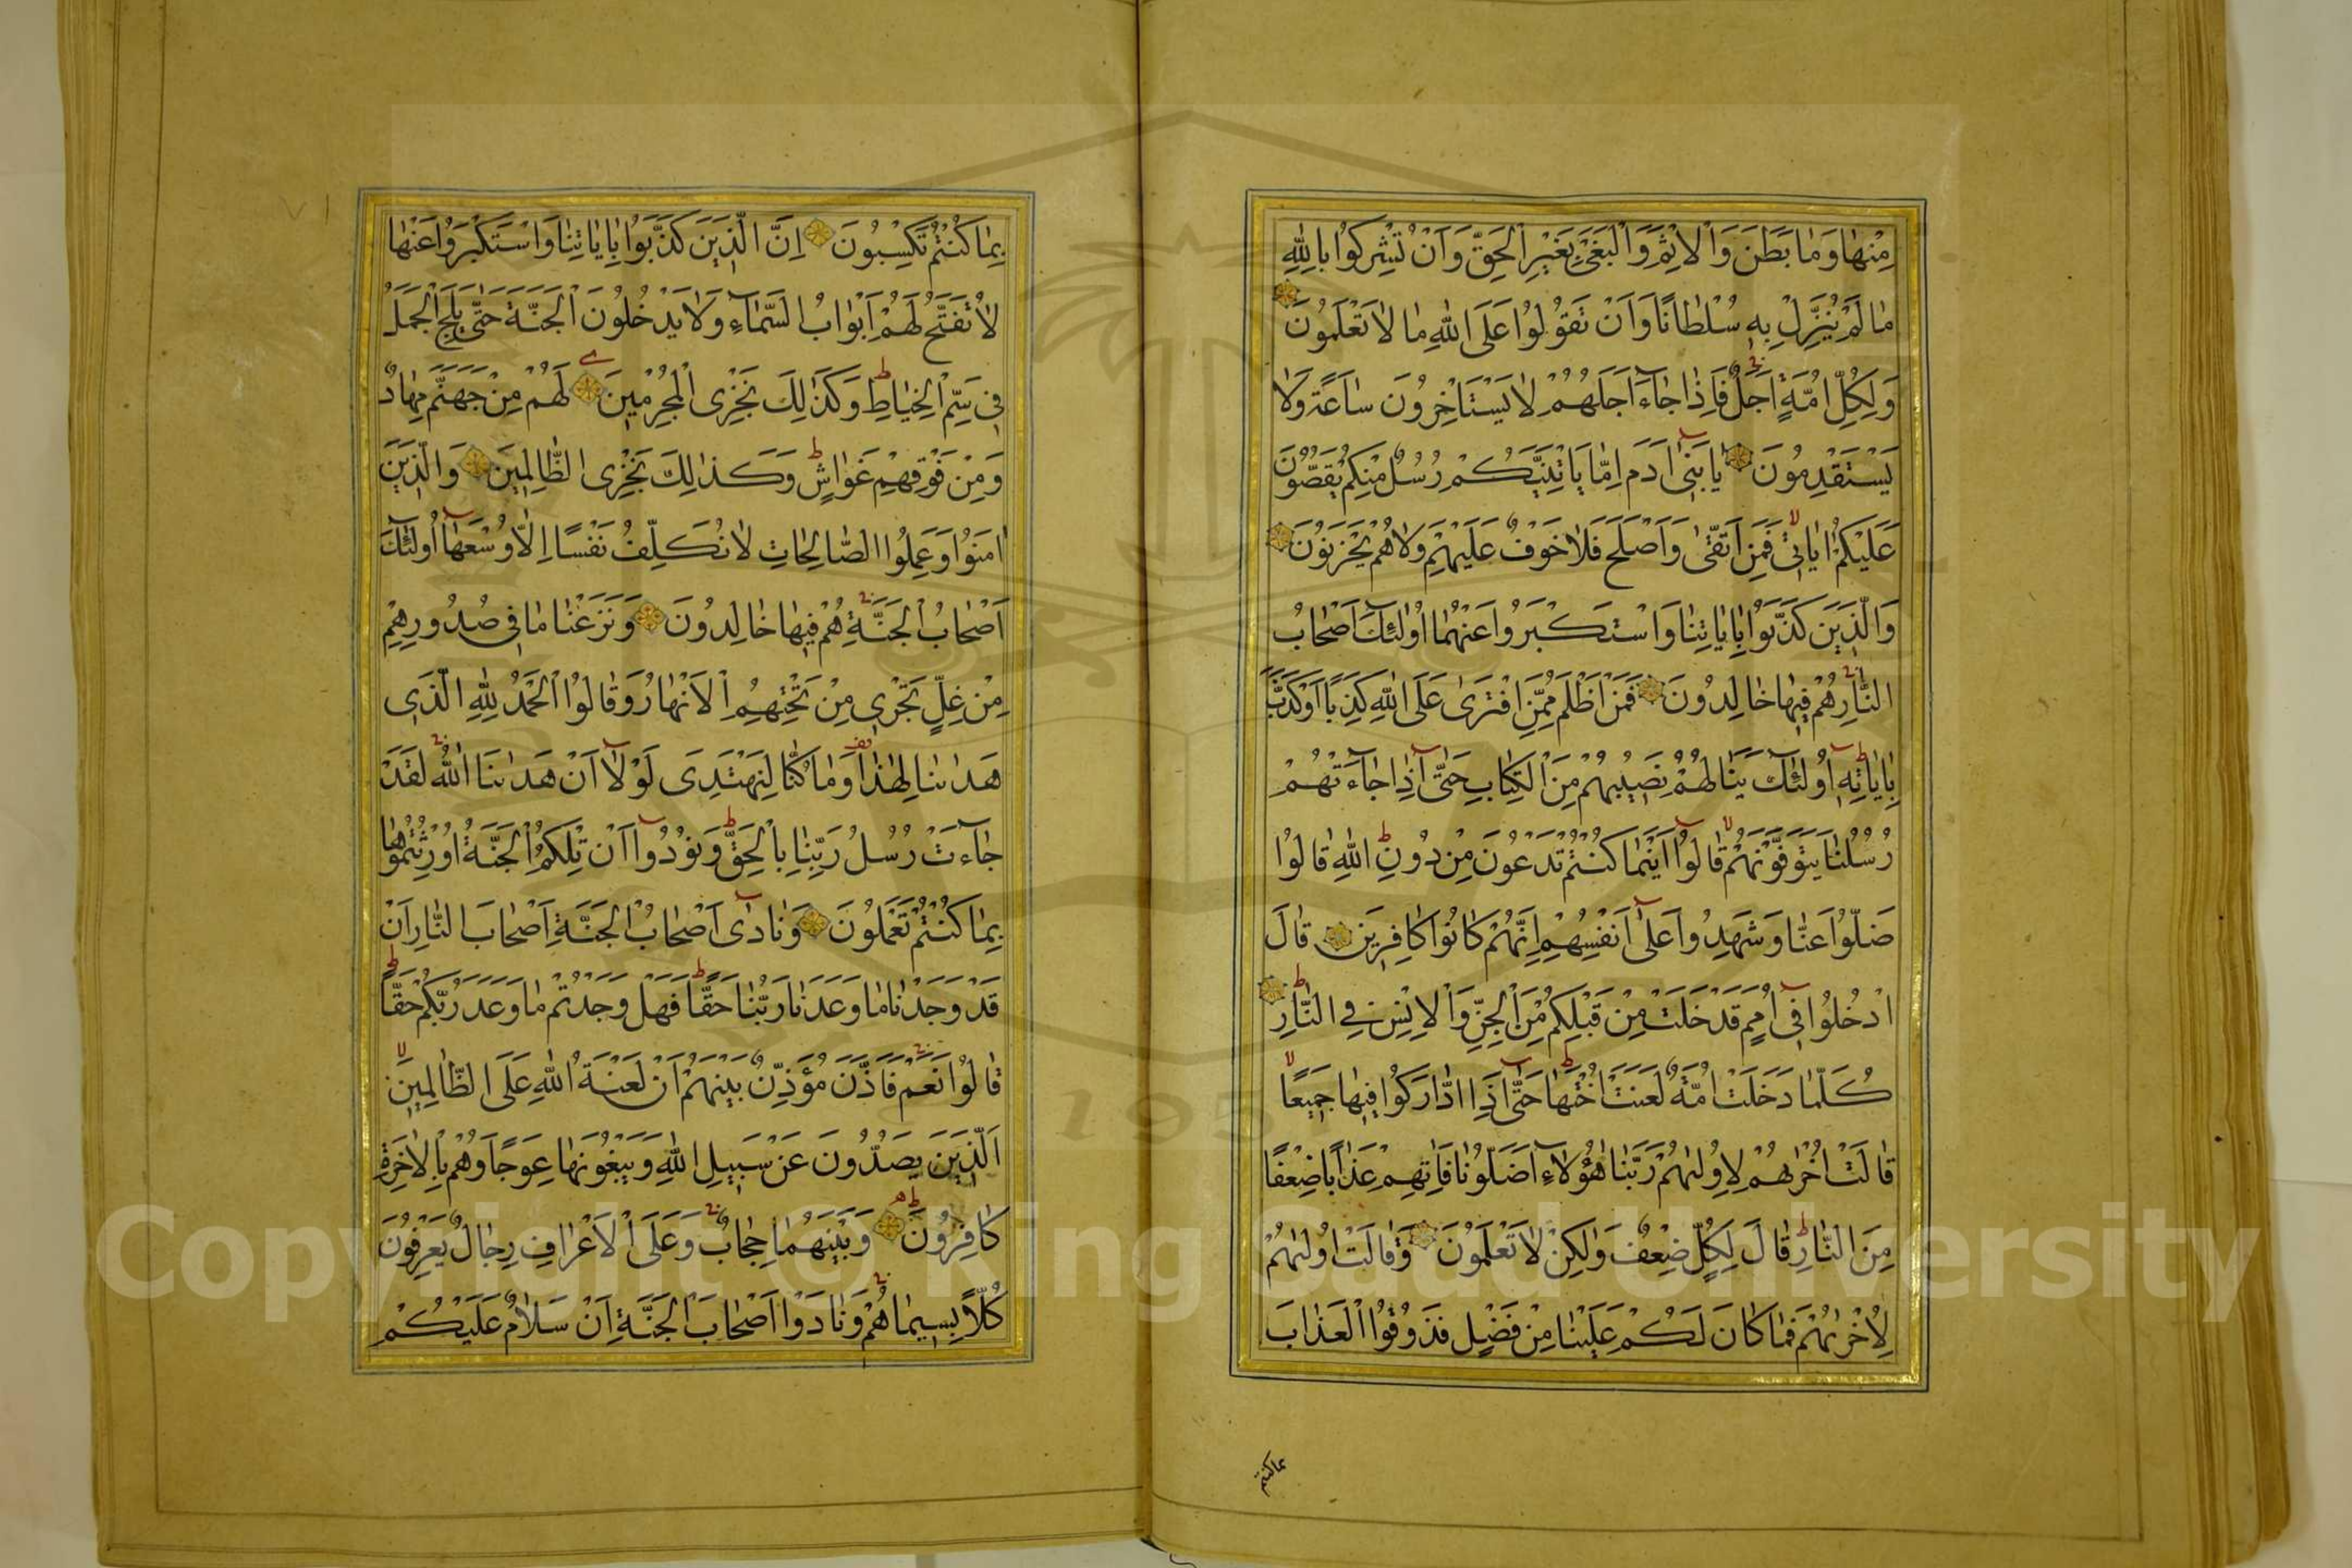 مِنْهَا وَمَا بَطَنَ وَالْاِثْمَ وَالْبَغْيَ بِغَيْرِ الْحَقِّ وَاَنْ تُشْرِكُوا بِاللّٰهِ
مَا لَمْ يُنَزِّلْ بِهِ سُلْطَانًا وَاَنْ تَقُولُوا عَلَى اللّٰهِ مَا لَا تَعْلَمُونَ
وَلِكُلِّ اُمَّةٍ اَجَلٌ فَاِذَا جَاءَ اَجَلُهُمْ لَا يَسْتَاْخِرُونَ سَاعَةً وَلَا
يَسْتَقْدِمُونَ يَا بَنِي اٰدَمَ اِمَّا يَاْتِيَنَّكُمْ رُسُلٌ مِنْكُمْ يَقُصُّونَ
عَلَيْكُمْ اٰيَاتِي فَمَنِ اتَّقٰى وَاَصْلَحَ فَلَا خَوْفٌ عَلَيْهِمْ وَلَا هُمْ يَحْزَنُونَ
وَالَّذِينَ كَذَّبُوا بِاٰيَاتِنَا وَاسْتَكْبَرُوا عَنْهَا اُولٰئِكَ اَصْحَابُ
النَّارِ هُمْ فِيهَا خَالِدُونَ فَمَنْ اَظْلَمُ مِمَّنِ افْتَرٰى عَلَى اللّٰهِ كَذِبًا اَوْ كَذَّبَ
بِاٰيَاتِهِ اُولٰئِكَ يَنَالُهُمْ نَصِيبُهُمْ مِنَ الْكِتَابِ حَتّٰى اِذَا جَاءَتْهُمْ
رُسُلُنَا يَتَوَفَّوْنَهُمْ قَالُوا اَيْنَمَا كُنْتُمْ تَدْعُونَ مِنْ دُونِ اللّٰهِ قَالُوا
ضَلُّوا عَنَّا وَشَهِدُوا عَلٰى اَنْفُسِهِمْ اِنَّهُمْ كَانُوا كَافِرِينَ قَالَ
ادْخُلُوا فِي اُمَمٍ قَدْ خَلَتْ مِنْ قَبْلِكُمْ مِنَ الْجِنِّ وَالْاِنْسِ فِي النَّارِ
كُلَّمَا دَخَلَتْ اُمَّةٌ لَعَنَتْ اُخْتَهَا حَتّٰى اِذَا ادَّارَكُوا فِيهَا جَمِيعًا
قَالَتْ اُخْرٰيهُمْ لِاُولٰيهُمْ رَبَّنَا هٰؤُلَاءِ اَضَلُّونَا فَاٰتِهِمْ عَذَابًا ضِعْفًا
مِنَ النَّارِ قَالَ لِكُلٍّ ضِعْفٌ وَلٰكِنْ لَا تَعْلَمُونَ وَقَالَتْ اُولٰيهُمْ
لِاُخْرٰيهُمْ فَمَا كَانَ لَكُمْ عَلَيْنَا مِنْ فَضْلٍ فَذُوقُوا الْعَذَابَ
بما كنتم
بِمَا كُنْتُمْ تَكْسِبُونَ اِنَّ الَّذِينَ كَذَّبُوا بِاٰيَاتِنَا وَاسْتَكْبَرُوا عَنْهَا
لَا تُفَتَّحُ لَهُمْ اَبْوَابُ السَّمَاءِ وَلَا يَدْخُلُونَ الْجَنَّةَ حَتّٰى يَلِجَ الْجَمَلُ
فِي سَمِّ الْخِيَاطِ وَكَذٰلِكَ نَجْزِي الْمُجْرِمِينَ لَهُمْ مِنْ جَهَنَّمَ مِهَادٌ
وَمِنْ فَوْقِهِمْ غَوَاشٍ وَكَذٰلِكَ نَجْزِي الظَّالِمِينَ وَالَّذِينَ
اٰمَنُوا وَعَمِلُوا الصَّالِحَاتِ لَا نُكَلِّفُ نَفْسًا اِلَّا وُسْعَهَا اُولٰئِكَ
اَصْحَابُ الْجَنَّةِ هُمْ فِيهَا خَالِدُونَ وَنَزَعْنَا مَا فِي صُدُورِهِمْ
مِنْ غِلٍّ تَجْرِي مِنْ تَحْتِهِمُ الْاَنْهَارُ وَقَالُوا الْحَمْدُ لِلّٰهِ الَّذِي
هَدٰينَا لِهٰذَا وَمَا كُنَّا لِنَهْتَدِيَ لَوْلَا اَنْ هَدٰينَا اللّٰهُ لَقَدْ
جَاءَتْ رُسُلُ رَبِّنَا بِالْحَقِّ وَنُودُوا اَنْ تِلْكُمُ الْجَنَّةُ اُورِثْتُمُوهَا
بِمَا كُنْتُمْ تَعْمَلُونَ وَنَادٰى اَصْحَابُ الْجَنَّةِ اَصْحَابَ النَّارِ اَنْ
قَدْ وَجَدْنَا مَا وَعَدَنَا رَبُّنَا حَقًّا فَهَلْ وَجَدْتُمْ مَا وَعَدَ رَبُّكُمْ حَقًّا
قَالُوا نَعَمْ فَاَذَّنَ مُؤَذِّنٌ بَيْنَهُمْ اَنْ لَعْنَةُ اللّٰهِ عَلَى الظَّالِمِينَ
اَلَّذِينَ يَصُدُّونَ عَنْ سَبِيلِ اللّٰهِ وَيَبْغُونَهَا عِوَجًا وَهُمْ بِالْاٰخِرَةِ
كَافِرُونَ وَبَيْنَهُمَا حِجَابٌ وَعَلَى الْاَعْرَافِ رِجَالٌ يَعْرِفُونَ
كُلًّا بِسِيمَاهُمْ وَنَادَوْا اَصْحَابَ الْجَنَّةِ اَنْ سَلَامٌ عَلَيْكُمْ
Copyright © King Saud University